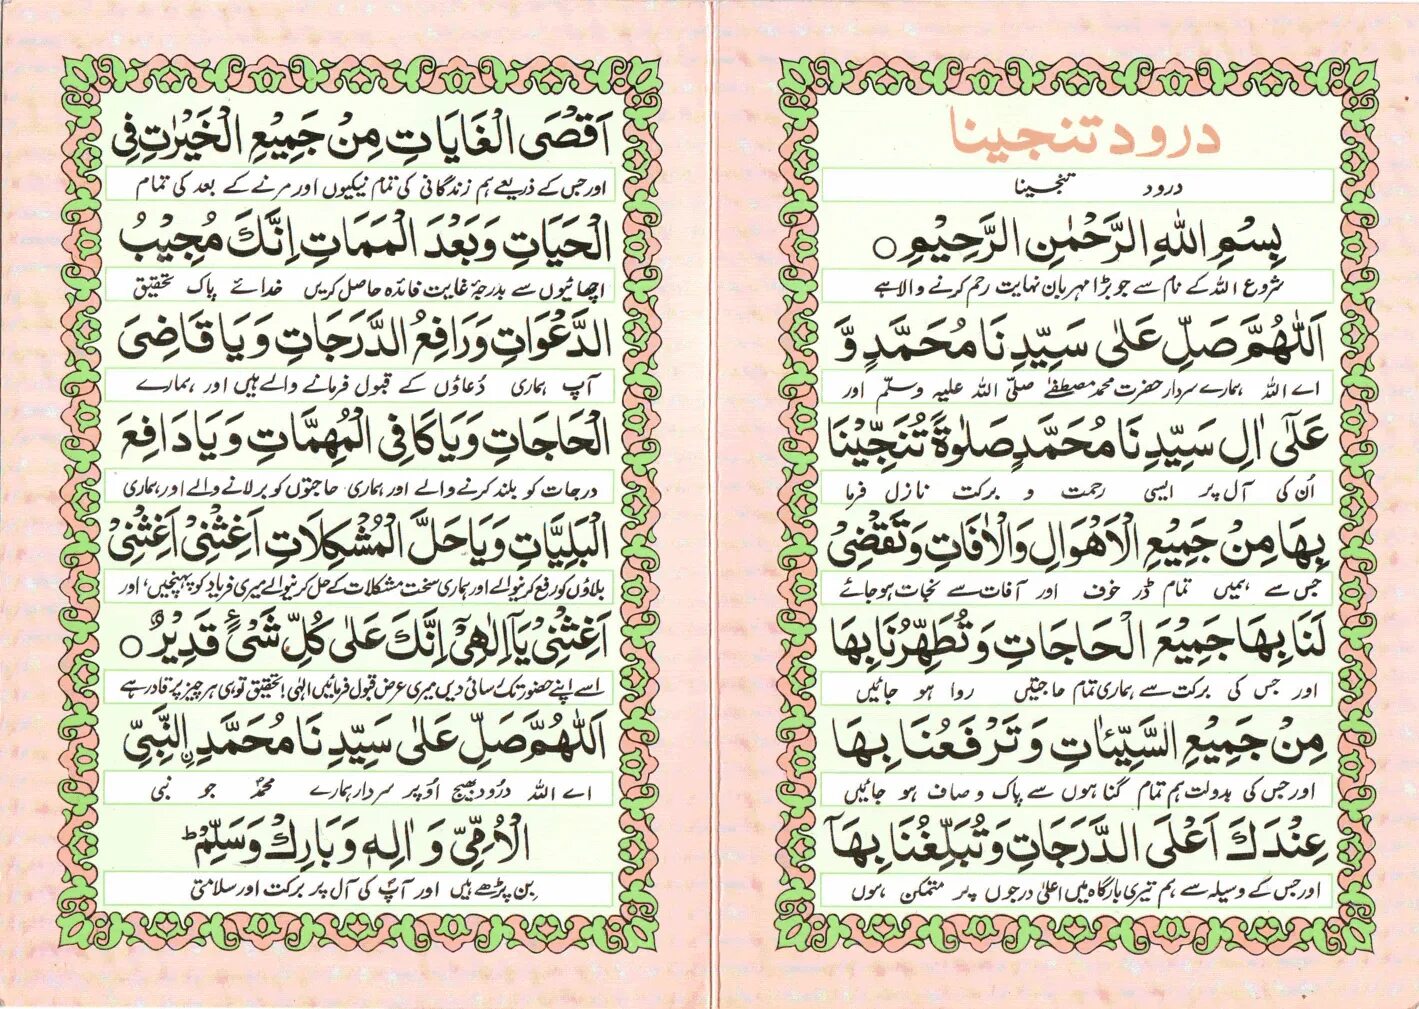 درود تنجینا
درود تنجینا
بِسْمِ اللّٰهِ الرَّحْمٰنِ الرَّحِيْمِ ○
شروع اللہ کے نام سے جو بڑا مہربان نہایت رحم کرنے والا ہے
اَللّٰهُمَّ صَلِّ عَلٰى سَيِّدِنَا مُحَمَّدٍ وَّ
اے اللہ ہمارے سردار حضرت محمد مصطفےٰ صلّی اللہ علیہ وسلّم اور
عَلٰٓى اٰلِ سَيِّدِنَا مُحَمَّدٍ صَلٰوةً تُنَجِّيْنَا
اُن کی آل پر ایسی رحمت و برکت نازل فرما
بِهَا مِنْ جَمِيْعِ الْاَهْوَالِ وَالْاٰفَاتِ وَتَقْضِىْ
جس سے ہمیں تمام ڈر خوف اور آفات سے نجات ہو جائے
لَنَا بِهَا جَمِيْعَ الْحَاجَاتِ وَتُطَهِّرُنَا بِهَا
اور جس کی برکت سے ہماری تمام حاجتیں روا ہو جائیں
مِنْ جَمِيْعِ السَّيِّئَاتِ وَتَرْفَعُنَا بِهَا
اور جس کی بدولت ہم تمام گناہوں سے پاک و صاف ہو جائیں
عِنْدَكَ اَعْلَى الدَّرَجَاتِ وَتُبَلِّغُنَا بِهَآ
اور جس کے وسیلہ سے ہم تیری بارگاہ میں اعلیٰ درجوں پر متمکن ہوں
اَقْصَى الْغَايَاتِ مِنْ جَمِيْعِ الْخَيْرٰتِ فِى
اور جس کے ذریعے ہم زندگانی کی تمام نیکیوں اور مرنے کے بعد کی تمام
الْحَيَاتِ وَبَعْدَ الْمَمَاتِ اِنَّكَ مُجِيْبُ
اچھائیوں سے بدرجۂ غایت فائدہ حاصل کریں خدائے پاک تحقیق
الدَّعْوَاتِ وَرَافِعُ الدَّرَجَاتِ وَيَا قَاضِىَ
آپ ہماری دُعاؤں کے قبول فرمانے والے ہیں اور ہمارے
الْحَاجَاتِ وَيَا كَافِى الْمُهِمَّاتِ وَيَا دَافِعَ
درجات کو بلند کرنے والے اور ہماری حاجتوں کو بر لانے والے اور ہماری
الْبَلِيَّاتِ وَيَا حَلَّ الْمُشْكِلَاتِ اَغِثْنِىْ اَغِثْنِىْ
بلاؤں کو رفع کرنیوالے اور ہماری سخت مشکلات کے حل کرنیوالے میری فریاد کو پہنچیں، اور
اَغِثْنِىْ يَآ اِلٰهِىْٓ اِنَّكَ عَلٰى كُلِّ شَىْءٍ قَدِيْرٌ ○
اسے اپنے حضور تک رسائی دیں میری عرض قبول فرمائیں الٰہی! تحقیق تو ہی ہر چیز پر قادر ہے
اَللّٰهُمَّ صَلِّ عَلٰى سَيِّدِنَا مُحَمَّدِ نِ النَّبِىِّ
اے اللہ درُود بھیج اُوپر سردار ہمارے محمدؐ جو نبی
الْاُمِّىِّ وَ اٰلِهٖ وَبَارِكْ وَسَلِّمْ ط
بِن پڑھے ہیں اور آپؐ کی آل پر برکت اور سلامتی